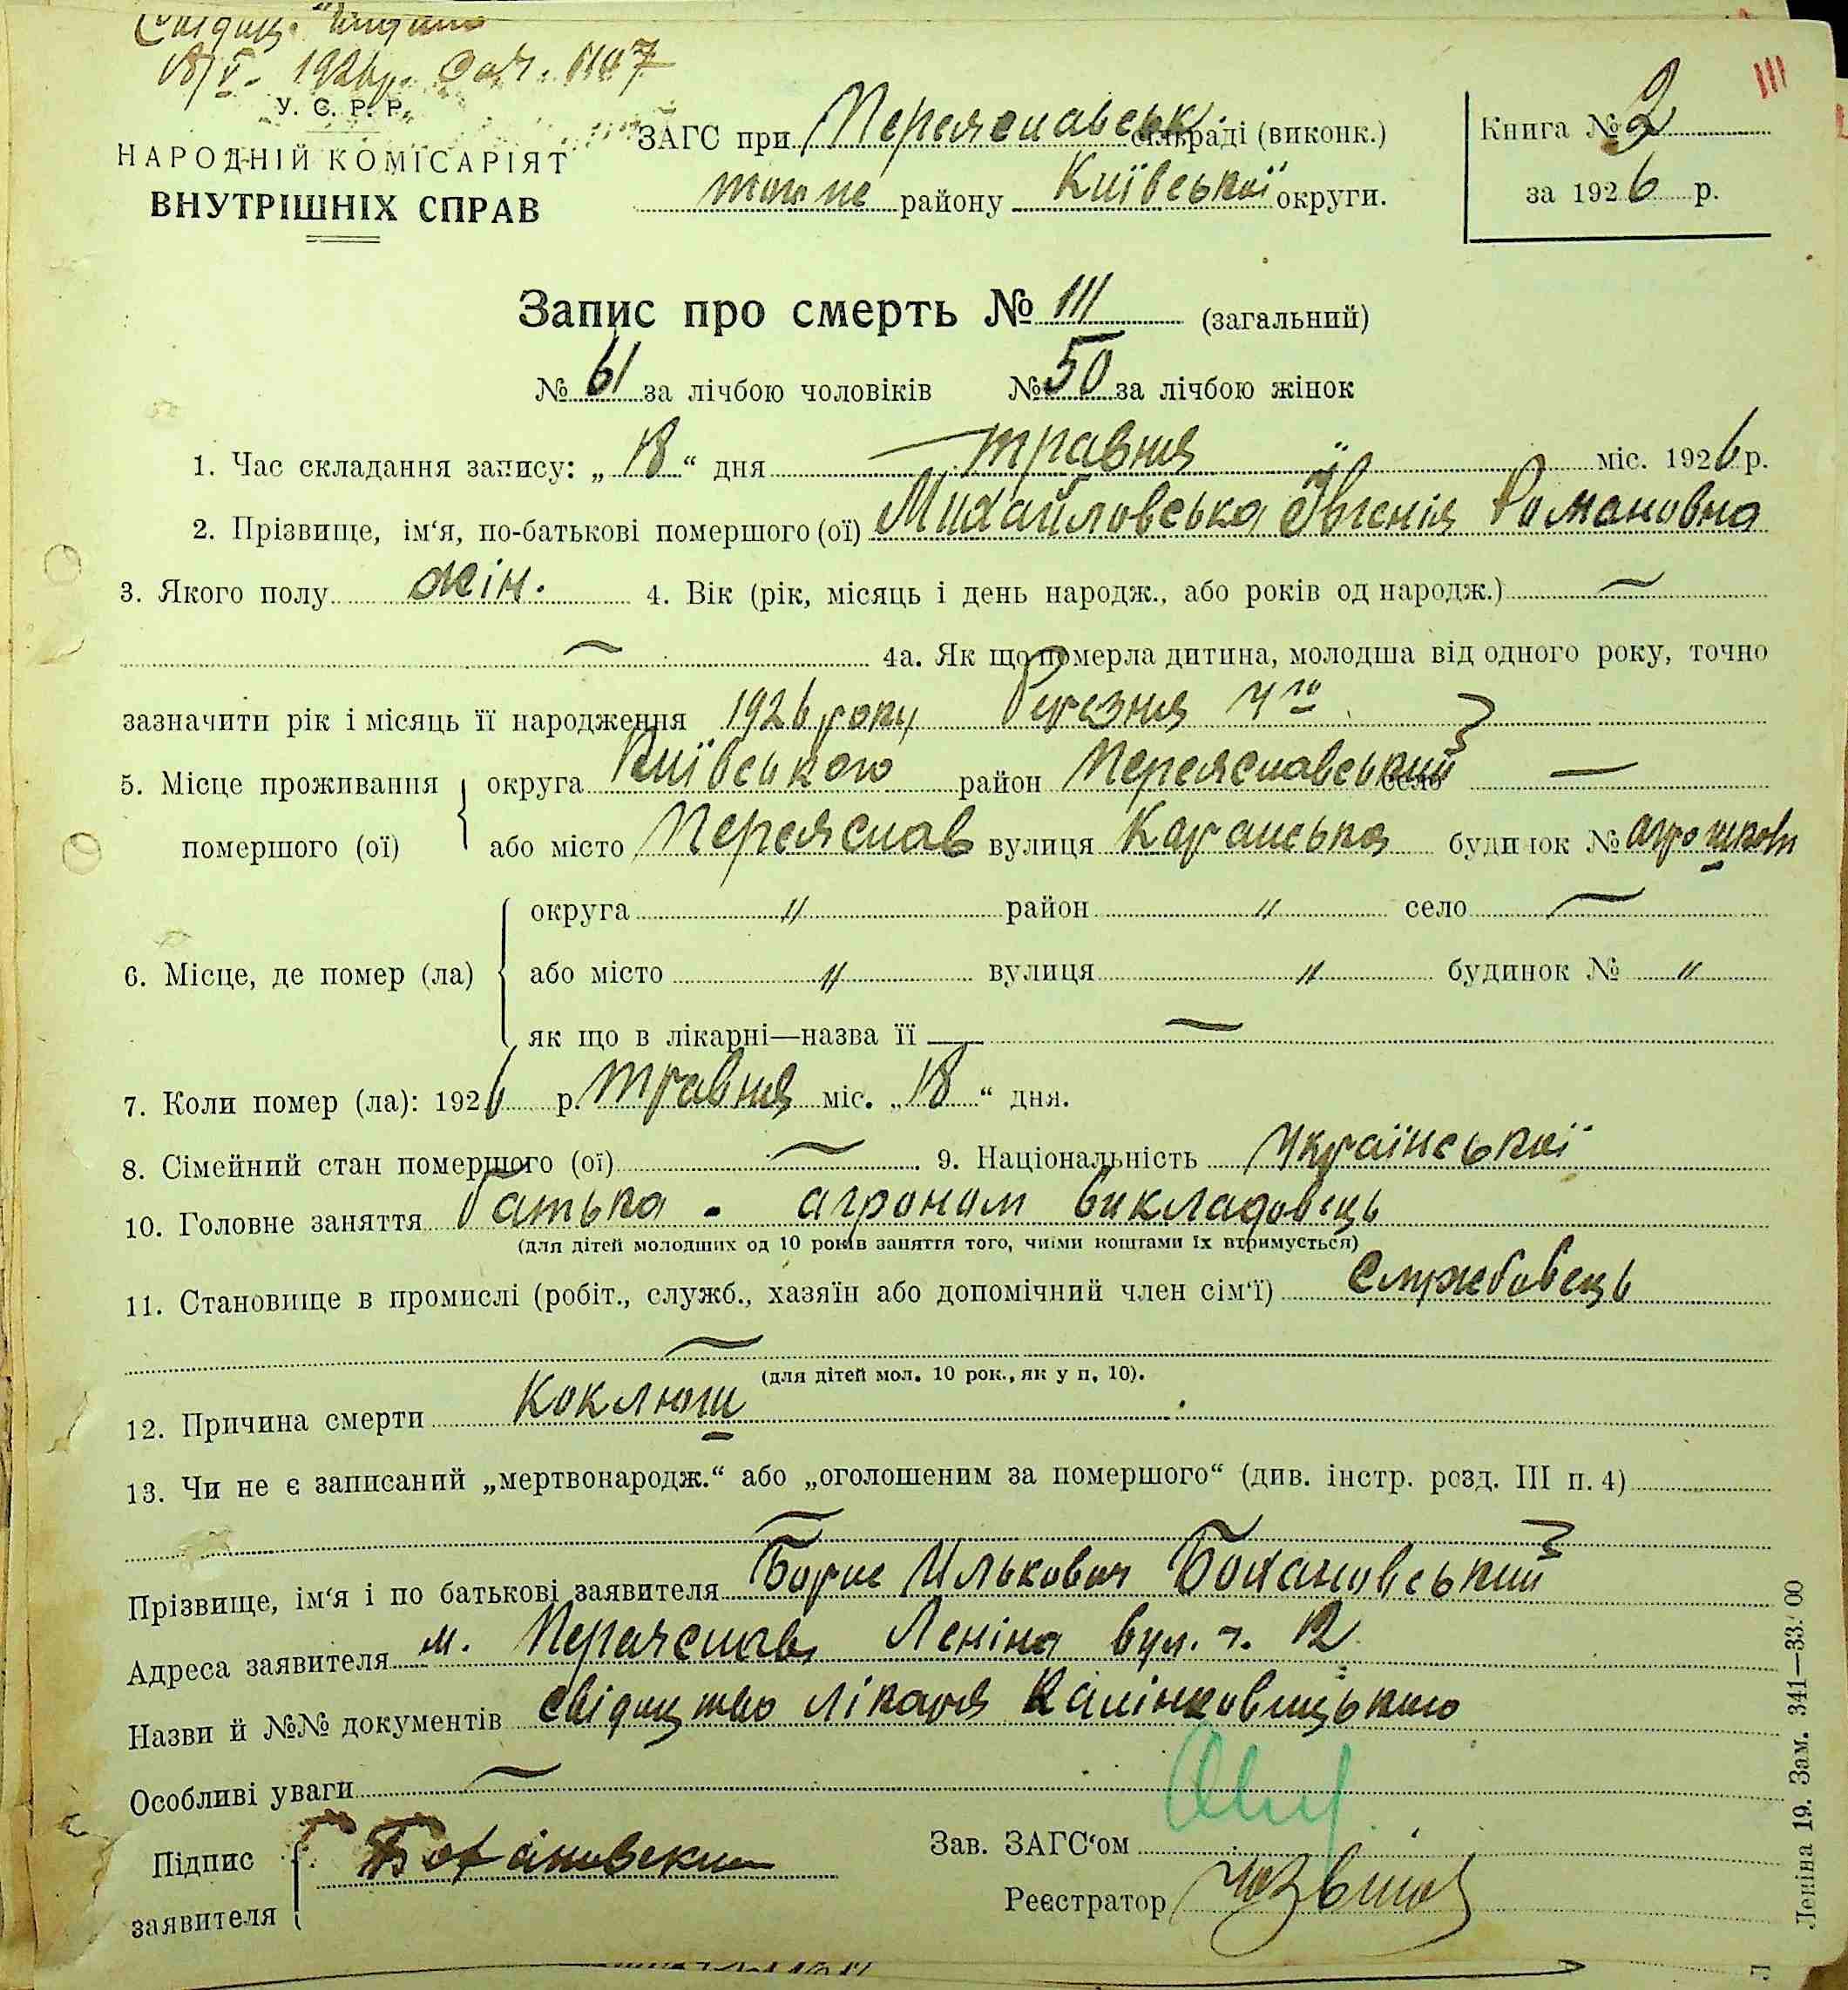 18/V- 1926 р.
У. С. Р. Р.
НАРОДНІЙ КОМІСАРІЯТ
ВНУТРІШНІХ СПРАВ
ЗАГС при Переяславськ. сільраді (виконк.)
району Київської округи.
Книга № 2
за 1926 р.
III
Запис про смерть № 111 (загальний)
№ 61 за лічбою чоловіків № 50 за лічбою жінок
1. Час складання запису: „ 18 “ дня травня міс. 1926 р.
2. Прізвище, ім‘я, по-батькові помершого (ої) Михайловська Ївгенія Романовна
3. Якого полу жін. 4. Вік (рік, місяць і день народж., або років од народж.) —
— 4а. Як що померла дитина, молодша від одного року, точно
зазначити рік і місяць її народження 1926 року Березня 4го
5. Місце проживання округа Київського район Переяславський село —
помершого (ої) або місто Переяслав вулиця Каранська будинок №
округа " район " село —
6. Місце, де помер (ла) або місто " вулиця " будинок № "
як що в лікарні—назва її —
7. Коли помер (ла): 1926 р. травня міс. „ 18 “ дня.
8. Сімейний стан помершого (ої) — 9. Національність Української
10. Головне заняття батька - агроном викладовець
(для дітей молодших од 10 років заняття того, чиїми коштами їх втримується)
11. Становище в промислі (робіт., служб., хазяїн або допомічний член сім‘ї) Службовець
—
(для дітей мол. 10 рок., як у п. 10).
12. Причина смерти Коклюш
13. Чи не є записаний „мертвонародж.“ або „оголошеним за помершого“ (див. інстр. розд. III п. 4)
—
Прізвище, ім‘я і по батькові заявителя Борис Илькович Бохановський
Адреса заявителя м. Переяслав Леніна вул. ч. 12
Назви й №№ документів свідоцтво лікаря
Особливі уваги —
Підпис заявителя Бохановский
Зав. ЗАГС‘ом
Реєстратор
Леніна 19. Зам. 341—33.